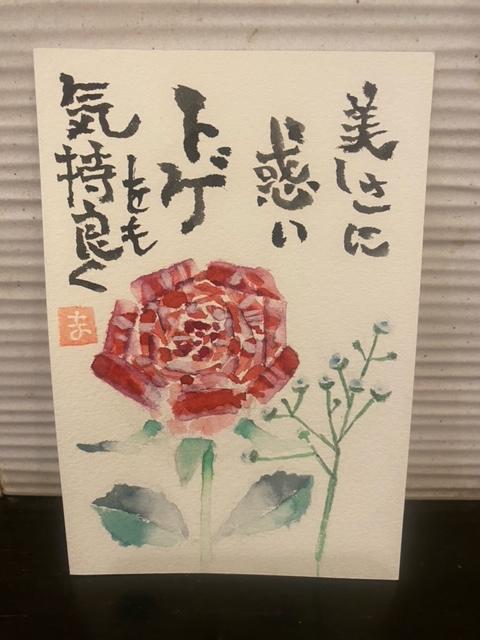 美しさに
惑い
トゲ
をも
気持良く
ま